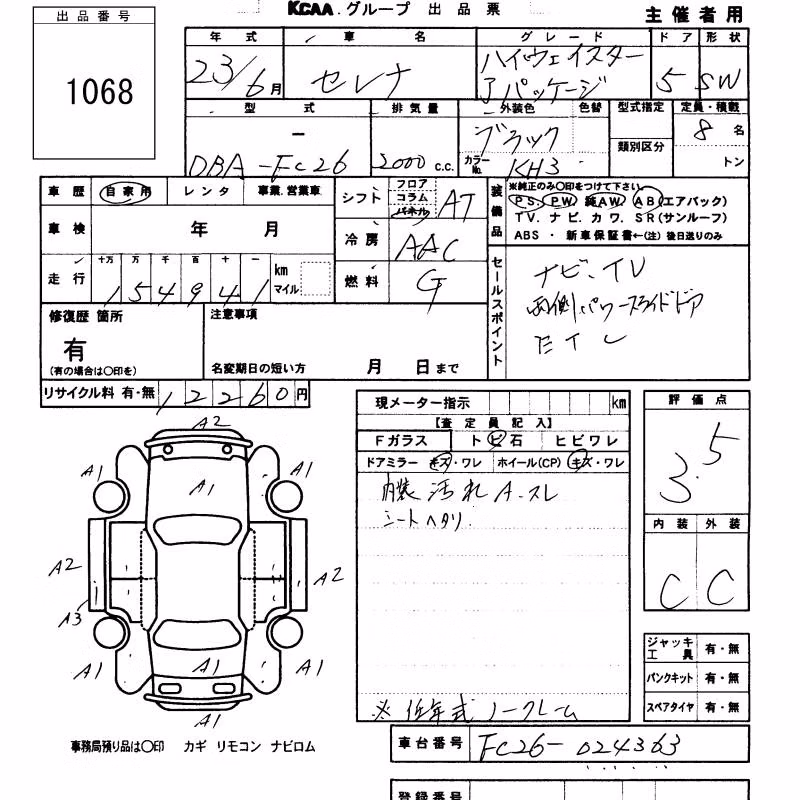 KCAA.グループ 出品票
主催者用
出品番号
1068
年式 車名 グレード ドア 形状
23/6月 セレナ ハイウェイスター 5 SW
Jパッケージ
型式 排気量 外装色 色替 型式指定 定員・積載
ー ブラック 8名
類別区分
DBA-FC26 2000 c.c. カラーNo. KH3 トン
車歴 自家用 レンタ 事業.営業車
車検 年 月
走行 十万 万 千 百 十 一 km マイル
154941
シフト フロア コラム パネル AT
冷房 AAC
燃料 G
装備品 ※純正のみ〇印をつけて下さい
PS. PW. 純AW. AB(エアバック)
TV. ナビ. カワ. SR(サンルーフ)
ABS ・ 新車保証書←(注) 後日送りのみ
セールスポイント ナビ・TV
両側パワースライドドア
ETC
修復歴 箇所 注意事項
有
(有の場合は〇印を) 名変期日の短い方 月 日まで
リサイクル料 有・無 12260円
現メーター指示 km
【査定員記入】
Fガラス トビ石 ヒビワレ
ドアミラー キズ・ワレ ホイール(CP) キズ・ワレ
内装 汚れ A.スレ
シートヘタリ
※ 低年式 ノークレーム
評価点
3.5
内装 外装
C C
ジャッキ 工具 有・無
パンクキット 有・無
スペアタイヤ 有・無
A2
A1 A1 A1
A2 A2
A3
A1 A1 A1
A1
事務局預り品は〇印 カギ リモコン ナビロム
車台番号 FC26-024363
登録番号